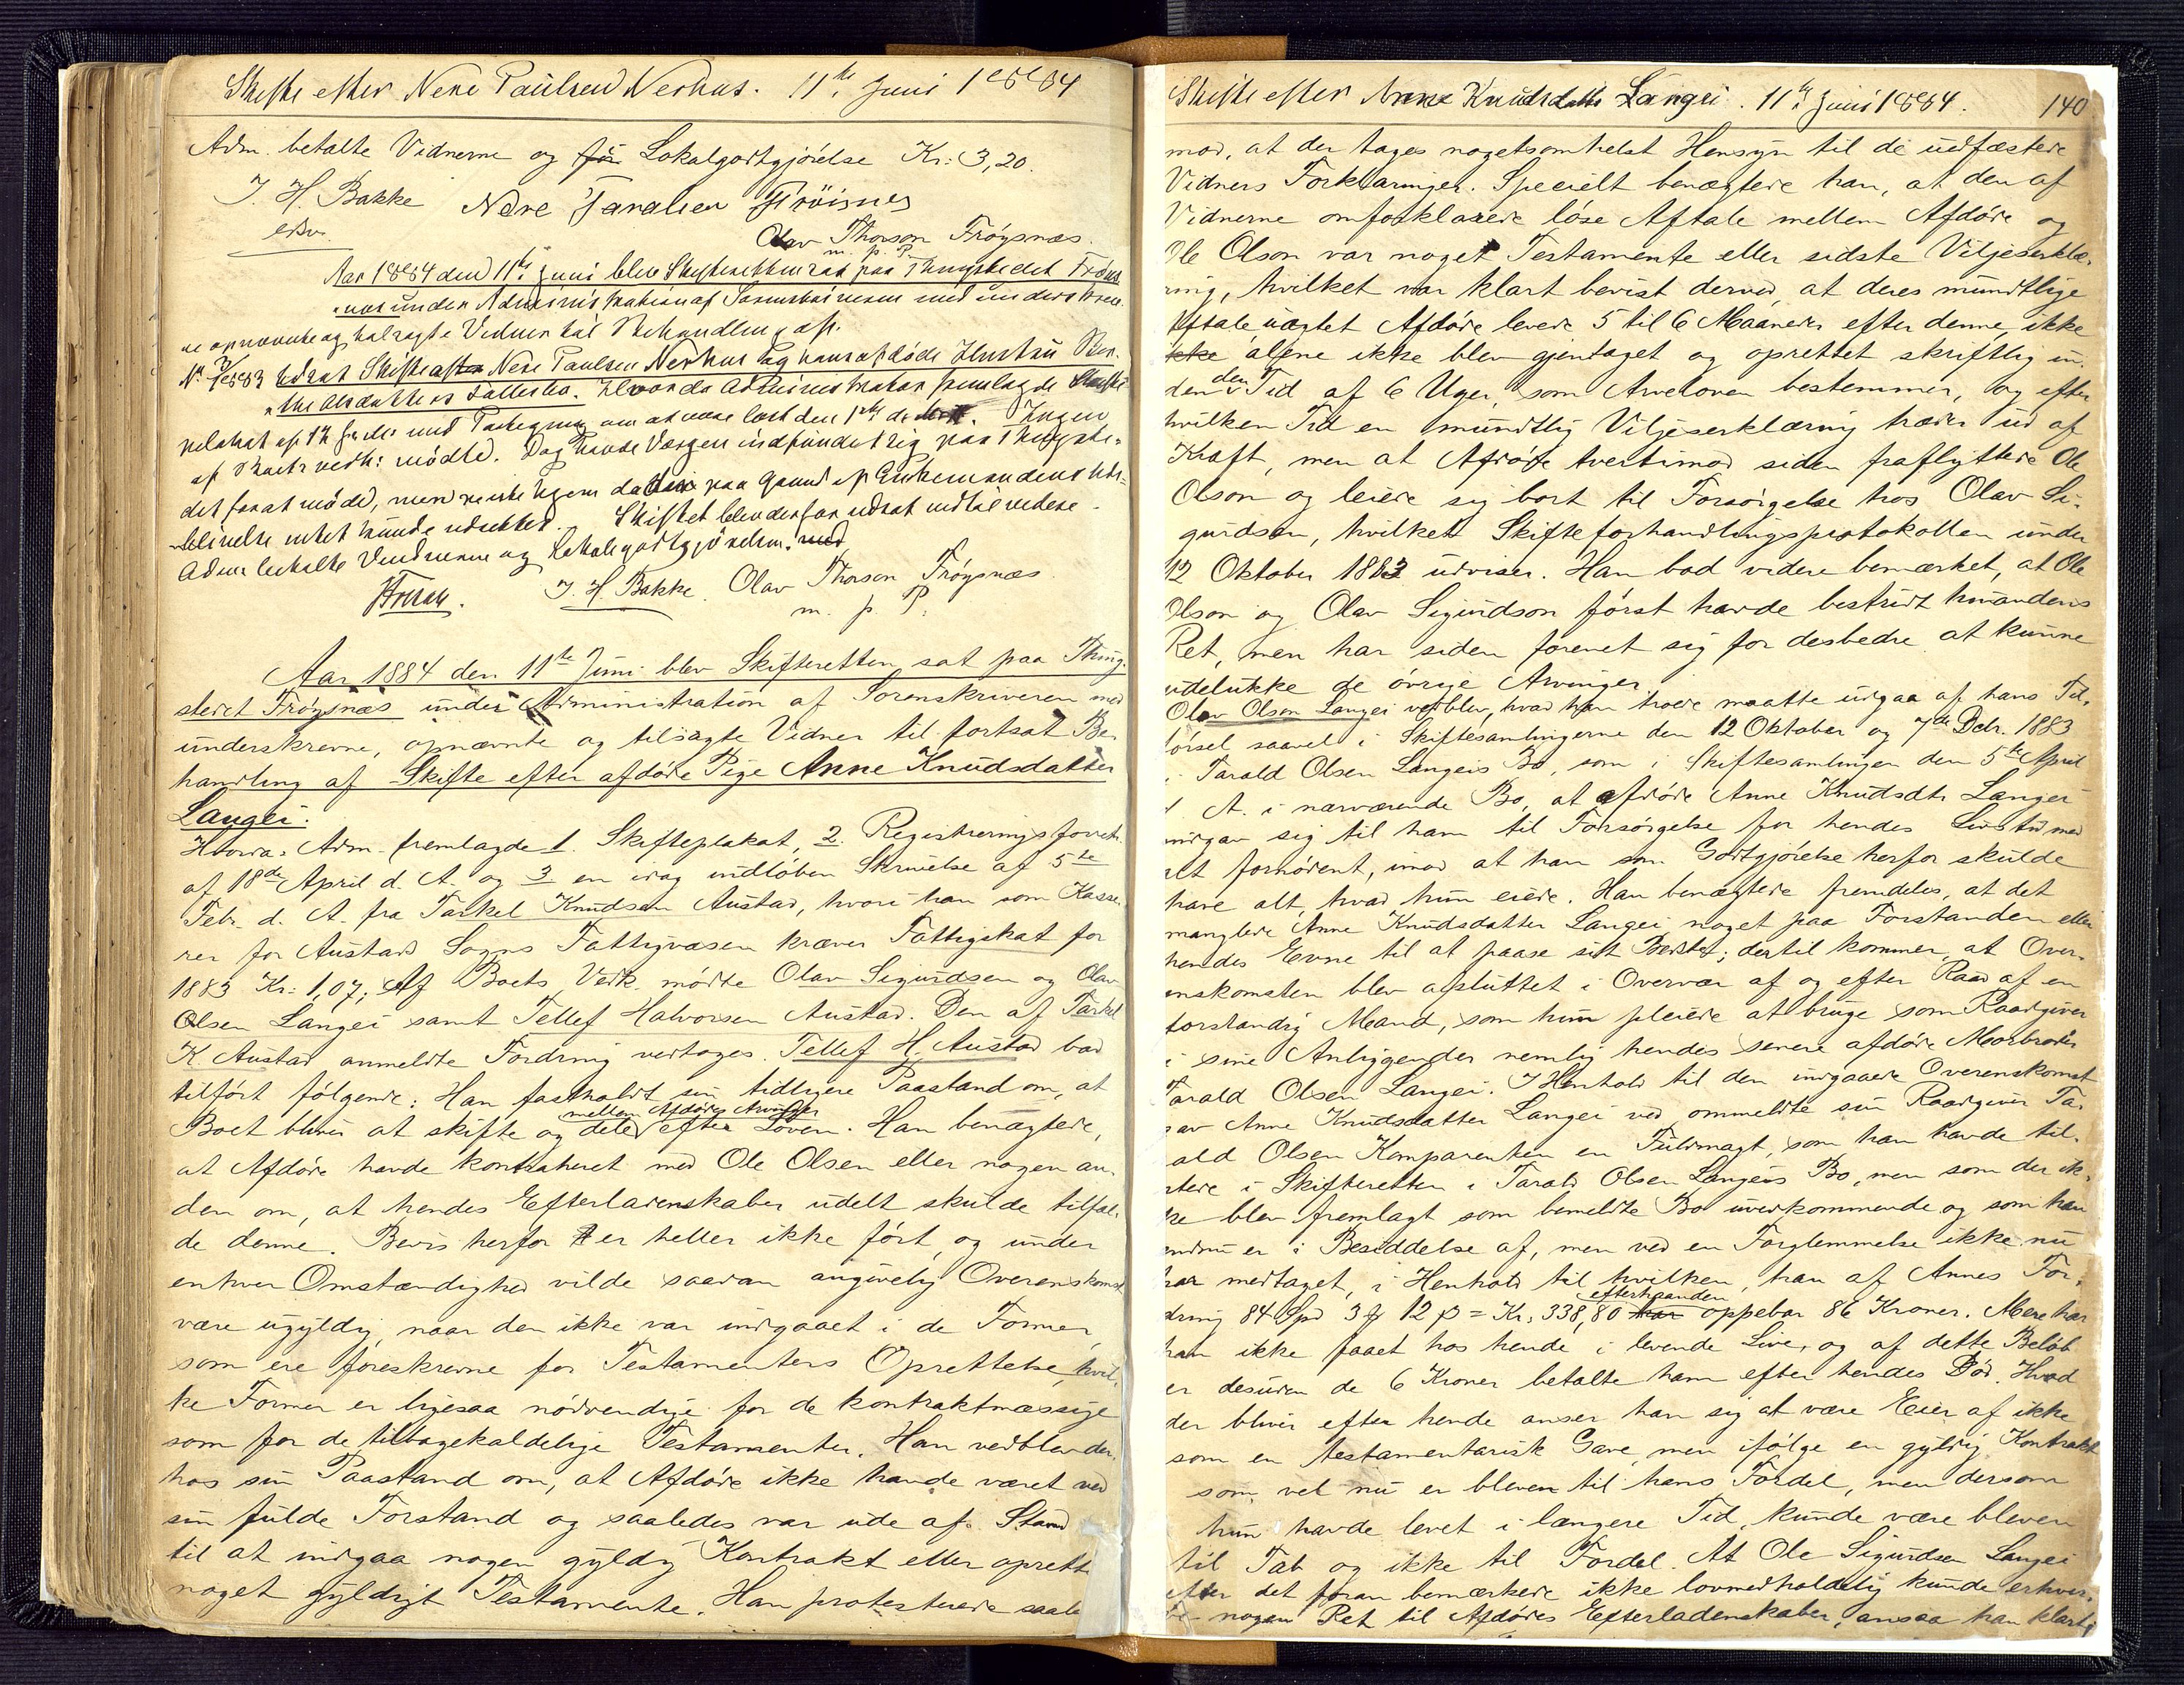 Skifte efter Nere Paulsen Nerhus. 11te Juni 1884
Adm. betalte Vidnerne og for Lokalgodtgjörelse Kr: 3,20.
J. H. Bakke Nere Taralsen Fröisnes
Olav Thorson Frøysnæs.
m. p. P.
Aar 1884 den 11te Juni blev Skifteretten sat paa Thingstedet Frøys-
næs under Administration af Sorenskriveren med underskrev-
ne opnævnte og tilsagte Vidner til Behandling af:
No 1883 Udsat Skifte efter Nere Paulsen Nerhus og hans afdøde Hustru
Fællesbo. Hvorda Administrator fremlagde Skifte-
plakat med Paategning om at være læst den Ingen
af Boets vedk: mödte. Dog havde Værgen indfundet sig paa Thingste-
det for at möde, men reiste igjen da der paa Grund af Enkemandens Ude-
blivelse intet kunde udrettes. Skiftet blev derfor udsat indtil videre.
Adm betalte Vidnerne og Lokalegodtgjörelsen. med
J. H. Bakke Olav Thorson Frøysnæs
m. p. P.
Aar 1884 den 11te Juni blev Skifteretten sat paa Thing-
stedet Frøysnæs under Administration af Sorenskriveren med
underskrevne, opnævnte og tilsagte Vidner til fortsat Be-
handling af Skifte efter afdöde Pige Anne Knudsdatter
Langei.
Hvorda Adm. fremlagde 1. Skifteplakat, 2. Registreringsforretn.
af 18de April d. A. og 3 en idag indløben Skrivelse af 5te
Febr. d. A. fra Tarkel Knudsen Austad, hvori han som Kasse-
rer for Austads Sogns Fattigvæsen kræver Fattigskat for
1883 Kr: 1,07; Af Boets Vedk. mödte Olav Sigurdsen og Olav
Olsen Langei samt Tellef Halvorsen Austad. Den af Tarkel
K Austad anmeldte Fordring vedtoges. Tellef H. Austad bad
tilfört fölgende: Han fastholdt sin tidligere Paastand om, at
Boet bliver at skifte og dele mellem Afdødes Arvinger efter Loven. Han benægtede,
at Afdöde havde kontraheret med Ole Olsen eller nogen an-
den om, at hendes Efterladenskaber udelt skulde tilfal-
de denne. Bevis herfor er heller ikke fört, og under
enhver Omstændighed vilde saadan angivelig Overenskomst
være ugyldig, naar den ikke var indgaaet i de Former,
som ere foreskrevne for Testamenters Oprettelse, hvil-
ke Former er ligesaa nödvendige for de kontraktmæssige
som for de tilbagekaldelige Testamenter. Han vedblev der-
hos sin Paastand om, at Afdöde ikke havde været ved
sin fulde Forstand og saaledes var ude af Stand
til at indgaa nogen gyldig Kontrakt eller oprett
noget gyldigt Testamente. Han protesterede saale
Skifte efter Anne Knudsdatter Langei. 11te Juni 1884. 140
mod, at der tages nogetsomhelst Hensyn til de udfæstede
Vidners Forklaringer. Specielt benægtede han, at den af
Vidnerne omforklarede löse Aftale mellem Afdöde og
Ole Olson var noget Testamente eller sidste Viljeserklæ-
ring, hvilket var klart bevist derved, at deres mundtlige
Aftale uagtet Afdöde levede 5 til 6 Maaneder efter denne, ikke
ikke alene ikke blev gjentaget og oprettet skriftlig in-
den den Tid af 6 Uger, som Arveloven bestemmer, og efter
hvilken Tid en mundtlig Viljeserklæring træder ud af
Kraft, men at Afdöde tvertimod siden fraflyttede Ole
Olson og leiede sig bort til Forsörgelse hos Olav Si-
gurdson, hvilket Skifteforhandlingsprotokollen under
12 Oktober 1883 udviser. Han bad videre bemærket, at Ole
Olson og Olav Sigurdson först havde bestridt hinandens
Ret, men har siden forenet sig for desbedre at kunne
udelukke de övrige Arvinger.
Olav Olsen Langei vedblev, hvad han troede maatte udgaa af hans Til-
försel saavel i Skiftesamlingerne den 12 Oktober og 7de Debr. 1883
i Tarald Olsen Langeis Bo, som i Skiftesamlingen den 5te April
d A. i nærværende Bo, at afdöde Anne Knudsdtr Langei
indgav sig til ham til Forsörgelse for hendes Livstid med
alt fornödent, imod at han som Godtgjörelse herfor skulde
have alt, hvad hun eiede. Han benægtede fremdeles, at det
manglede Anne Knudsdatter Langei noget paa Forstanden eller
hendes Evne til at paase sitt Bedste; dertil kommer, at Over-
enskomsten blev afsluttet i Overvær af og efter Raad af en
forstandig Mand, som hun pleiede at bruge som Raadgiver
i sine Anliggender nemlig hendes senere afdöde Morbroder
Tarald Olsen Langei. I Henhold til den indgaaede Overenskomst
gav Anne Knudsdatter Langei ved ommeldte sin Raadgiver Ta-
rald Olsen Komparenten en Fuldmagt, som han havde til-
stede i Skifteretten i Tarald Olsen Langeis Bo, men som der ik-
ke blev fremlagt som bemeldte Bo uvedkommende og som han
endnu er i Besiddelse af, men ved en Forglemmelse ikke nu
har medtaget, i Henhold til hvilken, han af Annes For-
dring 84 Spd 3 12 = Kr: 338,80 efterhaanden har oppebar 86 Kroner. Mere har
han ikke faaet hos hende i levende Live, og af dette Belöb
er desuden de 6 Kroner betalte ham efter hendes Död. Hvad
der bliver efter hende anser han sig at være Eier af ikke
som en testamentarisk Gave, men ifölge en gyldig Kontrakt
som vel nu er bleven til hans Fordel, men dersom
hun havde levet i længere Tid, kunde være bleven
til Tab og ikke til Fordel. At Ole Sigurdsen Langei
efter det foran bemærkede ikke lovmedholdelig kunde erhver-
ve nogen Ret til Afdödes Efterladenskaber, ansaa han klart,